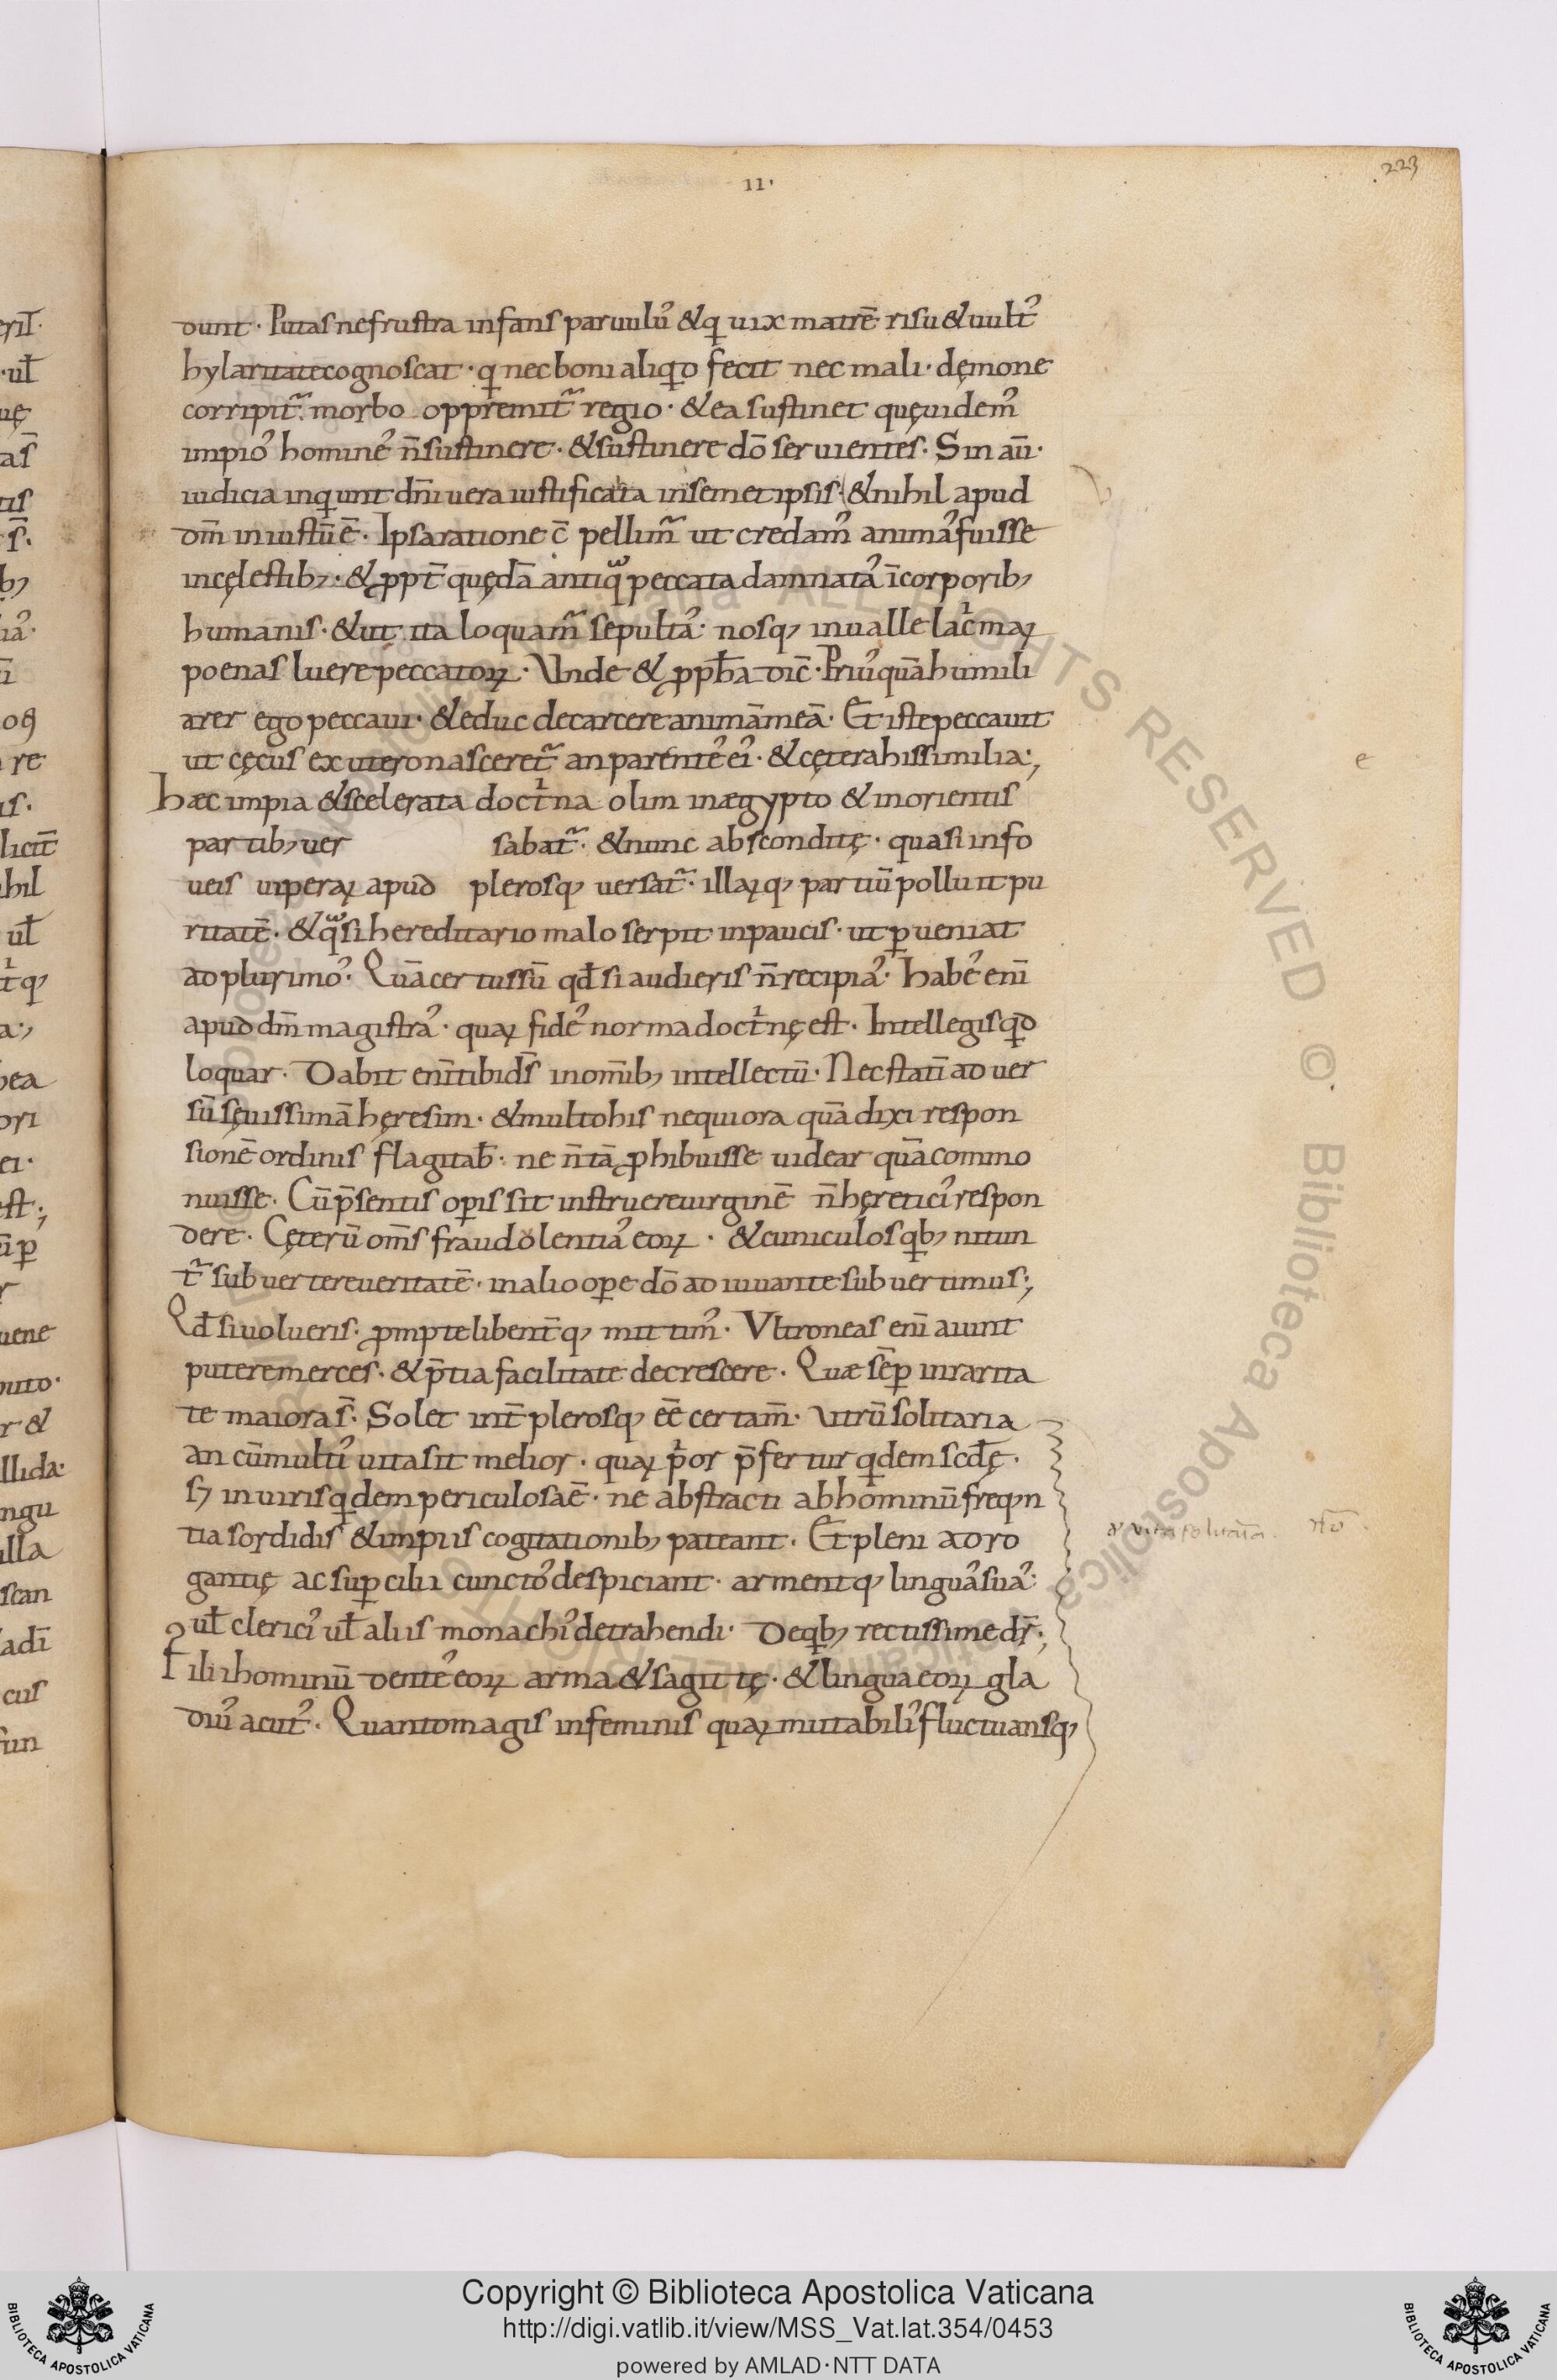 223
II·
dunt · Putas ne frustra infans paruulꝰ & q̇ uix matrē risu & uultꝰ
hylaritate cognoscat · q̇ nec boni aliq̇d fecit nec mali · dęmone
corripit᷑ · morbo opprimit᷑ regio · & ea sustinet quę uidemꝰ
impioꝰ homineꝰ n̄ sustinere · & sustinere dō seruientes · Sin aū ·
iudicia inquiunt dn̄i uera iustificata in semet ipsis · & nihil apud
dm̄ iniustū ē · Ipsa ratione cōpellim᷑ ut credamꝰ animaꝰ fuisse
in cęlestibꝫ · & ꝓpt̄ quędā antiqua peccata damnataꝰ ī corporibꝫ
humanis · & ut ita loquam᷑ sepultaꝰ · nosqꝫ in ualle lac̓maꝝ
poenas luere peccatoꝝ · Vnde & ꝓph̄a dic̄ · Priusquā humili
arer ego peccaui · & educ de carcere animā meā · Et iste peccauit
ut cęcus ex utero nasceret᷑ an parenteꝰ eiꝰ · & cętera his similia ·,
Hæc impia & scelerata doct̓na olim in ægypto & in orientis
partibꝫ uer sabat᷑ · & nunc abscondite · quasi in fo
ueis uiperaꝝ apud plerosqꝫ uersat᷑ · illaꝝqꝫ partiū polluit pu
ritatē · & q̃si hereditario malo serpit in paucis · ut ꝑueniat
ad plurimoꝰ · Quā certus sū qđ si audieris n̄ recipiaꝰ · Habeꝰ enī
apud dm̄ magistraꝰ · quaꝝ fideꝰ norma doct̓nę est · Intellegis q̇d
loquar · Dabit enī tibi ds̄ in om̄ibꝫ intellectū · Nec statī aduer
sū sęuissimā hęresim · & multo his nequiora quā dixi respon
sionē ordinis flagitab̄ · ne n̄ tā ꝓhibuisse uidear quā commo
nuisse · Cū p̄sentis oꝑis sit instruere uirginē n̄ hęreticiꝰ respon
dere · Cęterū om̄s fraudolentiaꝰ eoꝝ · & cuniculos q̇bꝫ nitun
t᷑ subuertere ueritatē · in alio opere dō adiuuante subuertimus ·,
Qđ si uolueris · ꝓmpte libent̄qꝫ mittimꝰ · Vltroneas enī aiunt
putere merces · & p̄tia facilitate decrescere · Quæ sēꝑ in rarita
te maiora s̄ · Solet int̄ plerosqꝫ eē certam̄ · Vtrū solitaria
an cū multiꝰ uita sit melior · quaꝝ p̓or p̄fertur q̇dem scđę ·
sꝫ in uiris q̇dem periculosa ē · ne abstracti ab hominū freqꝫn
tia sordidis & impiis cogitationibꝫ pateant · Et pleni adro
gantię ac suꝑcilii cunctoꝰ despiciant · armentqꝫ linguaꝰ suaꝰ ·
uł clericiꝰ uł aliis monachiꝰ detrahendi · De q̇bꝫ rectissime dr̄ ·,
Filii hominū denteꝰ eoꝝ arma & sagittę · & lingua eoꝝ gla
diuꝰ acutꝰ · Quanto magis in feminis quaꝝ mutabiliꝰ fluctuansqꝫ
e
Copyright © Biblioteca Apostolica Vaticana
http://digi.vatlib.it/view/MSS_Vat.lat.354/0453
powered by AMLAD·NTT DATA
BIBLIOTECA APOSTOLICA VATICANA
BIBLIOTECA APOSTOLICA VATICANA